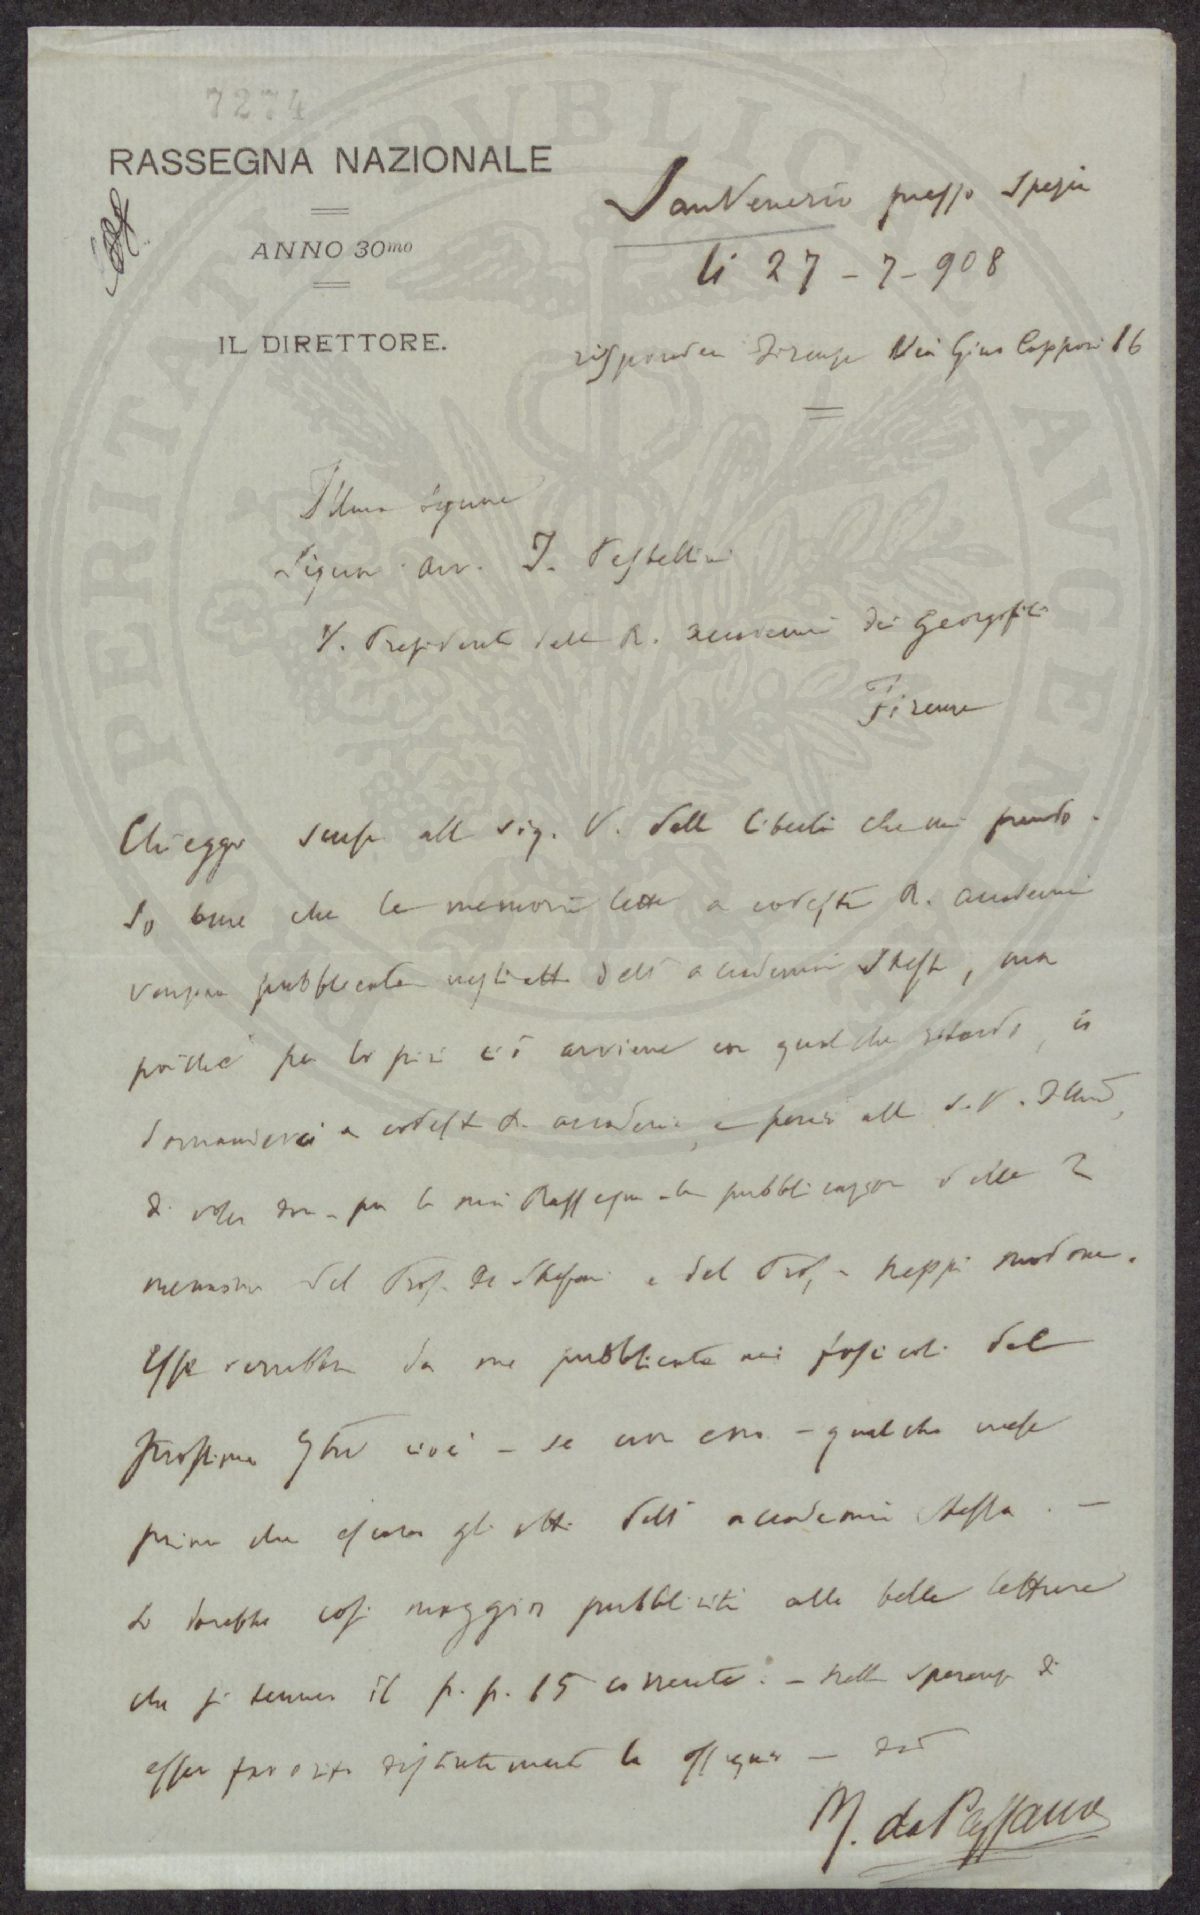 7274
RASSEGNA NAZIONALE
ANNO 30mo
IL DIRETTORE.
San Venerio presso Spezia
li 27-7-908
risponder Firenze Via Gino Capponi 16
Signor avv. Pestellini
V. Presidente della R. accademia dei Georgofili
Firenze
Chieggo scusa alla Sig. V. della libertà che mi prendo.
So bene che le memorie lette a codesta R. accademia
vengono pubblicate negli atti dell'accademia stessa, ma
poiché per lo più ciò avviene con qualche ritardo, io
domanderei a codesta R. accademia, e per essa alla S.V. Illma,
di voler dare per la mia Rassegna la pubblicazione delle 2
memorie del Prof. De Stefani e del Prof.
Esse verrebbero da me pubblicate nei fascicoli del
prossimo 9bre cioè - se non erro - qualche mese
prima che escano gli atti dell'accademia stessa. -
Si darebbe così maggior pubblicità alle belle letture
che si tennero il p.p. 15 corrente. - Nella speranza di
esser favorito distintamente la ossequio -
M. da Passano
PROSPERITATI PVBLICAE AVGENDAE